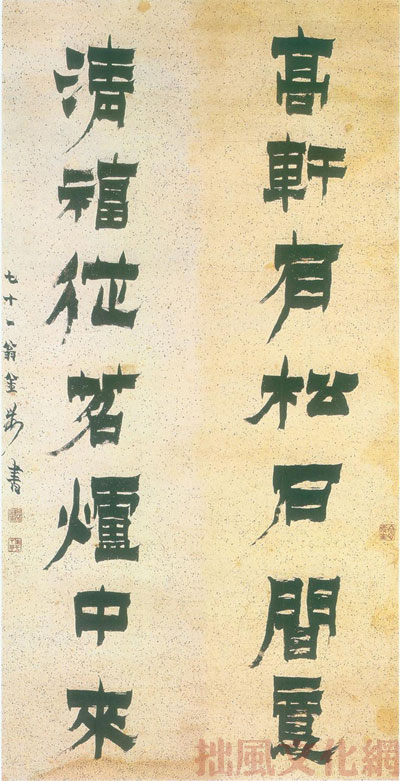 高軒有松石間
清福從茗爐中來
七十一翁金農書
拙風文化網